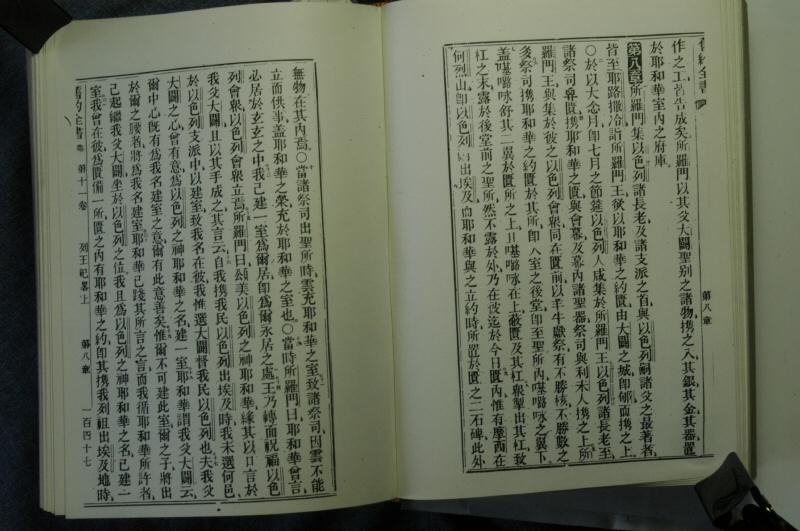 舊約全書
第八章
作之工皆告成矣所羅門以其父大闢聖别之諸物携之入其銀其金其器置
於耶和華室内之府庫
第八章 所羅門集以色列諸長老及諸支派之首與以色列嗣諸父之最著者
皆至耶路撒冷詣所羅門王欲以耶和華之約匱由大闢之城即郇而携之上
〇於以大念月即七月之節筵以色列人咸集於所羅門王以色列諸長老至
諸祭司舁匱携耶和華之匱與會幕及幕内諸聖器祭司與利未人携之上所
羅門王與集於彼之以色列會衆同在匱前以羊牛獻祭有不勝核不勝數之
多祭司携耶和華之約匱於其所即入室之後堂即至聖所内𠼻㘔咏之翼下
盖𠼻㘔咏舒其二翼於匱所之上且𠼻㘔咏在上蔽匱及其杠衆舉出其杠致
杠之末露於後堂前之聖所然不露於外乃在彼迄於今日匱内惟有摩西在
何烈山即以色列 出埃及 而耶和華與之立約時所置於匱之二石碑此外
無物在其内焉〇當諸祭司出聖所時雲充耶和華之室致諸祭司因雲不能
立而供事盖耶和華之榮充於耶和華之室也〇當時所羅門曰耶和華曾言
必居於玄玄之中我已建一室爲爾居即爲爾永居之處王乃轉面祝福以色
列會衆以色列會衆立焉所羅門曰頌美以色列之神耶和華緣其以口言於
我父大闢且以其手成之其言云自我携我民以色列出埃及時我未選何邑
於以色列支派中以建室致我名在彼我惟選大闢督我民以色列也夫我父
大闢之心曾有意爲以色列之神耶和華之名建一室耶和華謂我父大闢云
爾中心既有爲我名建室之意爾有此意善矣惟爾不可建此室爾之子將出
於爾之腰者將爲我名建室耶和華已踐其所言之言而我循耶和華所許者
已起繼我父大闢坐於以色列之位我且爲以色列之神耶和華之名已建一
室我曾在彼爲匱備一所匱之内有耶和華之約即其携我列祖出埃及地時
舊約全書 第十一卷 列王紀畧上 第八章 一百四十七